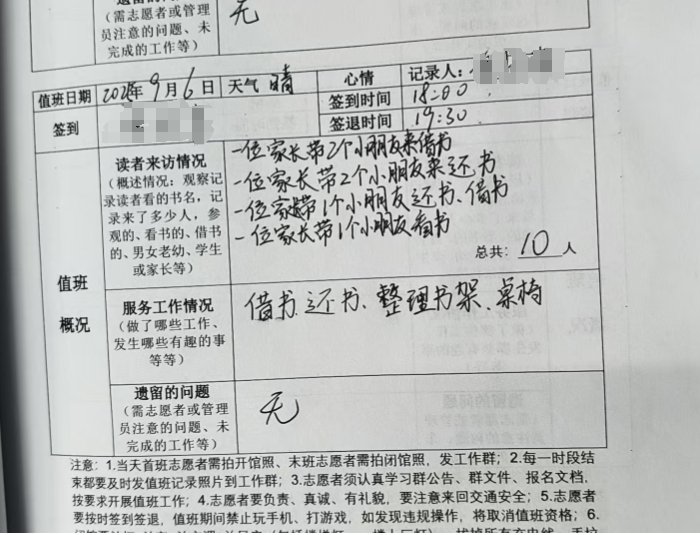 (需志愿者或管理
员注意的问题、未
完成的工作等)
无
值班日期 2024年9月6日 天气 晴 心情 记录人:
签到 签到时间 18:00
签退时间 19:30
读者来访情况
(概述情况:观察记
录读者看的书名,记
录来了多少人,参
观的、看书的、借书
的、男女老幼、学生
或家长等)
一位家长带2个小朋友来借书
一位家长带2个小朋友来还书
一位家长带1个小朋友还书、借书
一位家长带1个小朋友看书
总共: 10 人
值班
概况
服务工作情况
(做了哪些工作、
发生哪些有趣的事
等等)
借书、还书、整理书架、桌椅
遗留的问题
(需志愿者或管理
员注意的问题、未
完成的工作等)
无
注意:1.当天首班志愿者需拍开馆照、末班志愿者需拍闭馆照,发工作群;2.每一时段结
束都要及时发值班记录照片到工作群;3.志愿者须认真学习群公告、群文件、报名文档,
按要求开展值班工作;4.志愿者要负责、真诚、有礼貌,要注意来回交通安全;5.志愿者
要按时签到签退,值班期间禁止玩手机、打游戏,如发现违规操作,将取消值班资格;6.